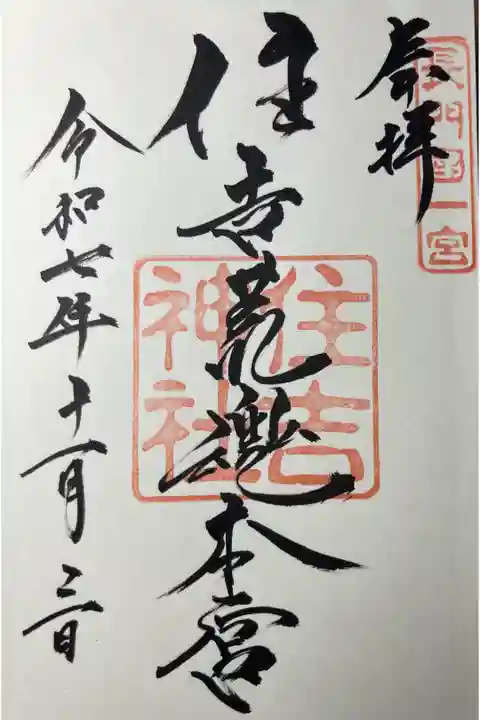 長門国一宮
奉拝
住吉荒魂本宮
住吉
神社
令和七年十一月三日